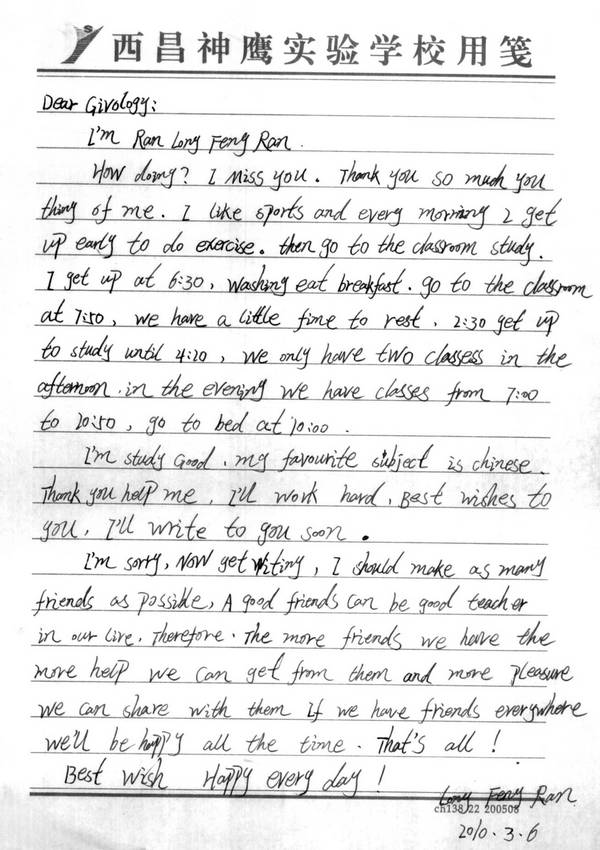 S
西昌神鹰实验学校用笺
Dear Givology:
I'm Ran Long Feng Ran.
How doing? I miss you. Thank you so much you
thing of me. I like sports and every morning I get
up early to do exercise. then go to the classroom study.
I get up at 6:30, washing eat breakfast. go to the classroom
at 7:50, we have a little time to rest. 2:30 get up
to study until 4:20, we only have two classess in the
afternoon. in the evening we have classes from 7:00
to 10:50, go to bed at 10:00.
I'm study Good. my favourite subject is chinese.
Thank you help me, I'll work hard, Best wishes to
you, I'll write to you soon.
I'm sorry, Now get writing, I should make as many
friends as possible, A good friends can be good teacher
in our live. Therefore. The more friends we have the
more help we can get from them and more pleasure
we can share with them If we have friends everywhere
we'll be happy all the time. That's all!
Best Wish Happy every day!
Long Feng Ran
ch138 22 200508
2010.3.6